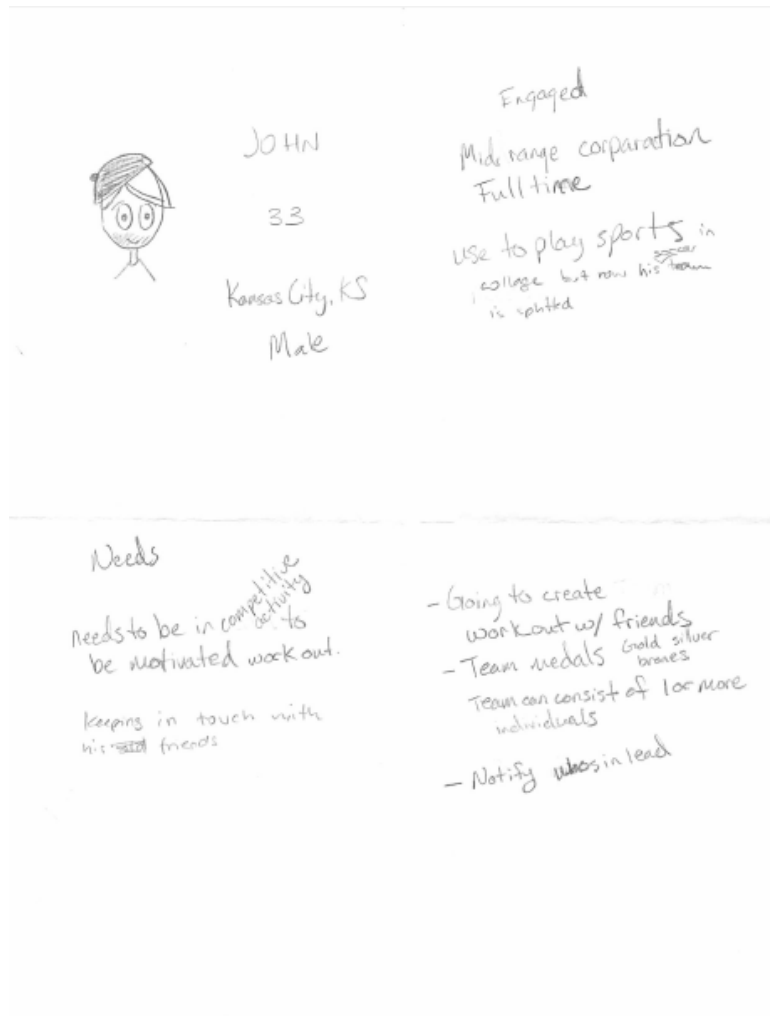 JOHN
33
Kansas City, KS
Male
Engaged
Mid range corparation
Full time
use to play sports in
collage but now his soccer team
is splitted
Needs
needs to be in competitive
activity to
be motivated work out.
Keeping in touch with
his friends
- Going to create
workout w/ friends
- Team medals Gold silver
brones
Team can consist of 1 or more
individuals
- Notify whos in lead